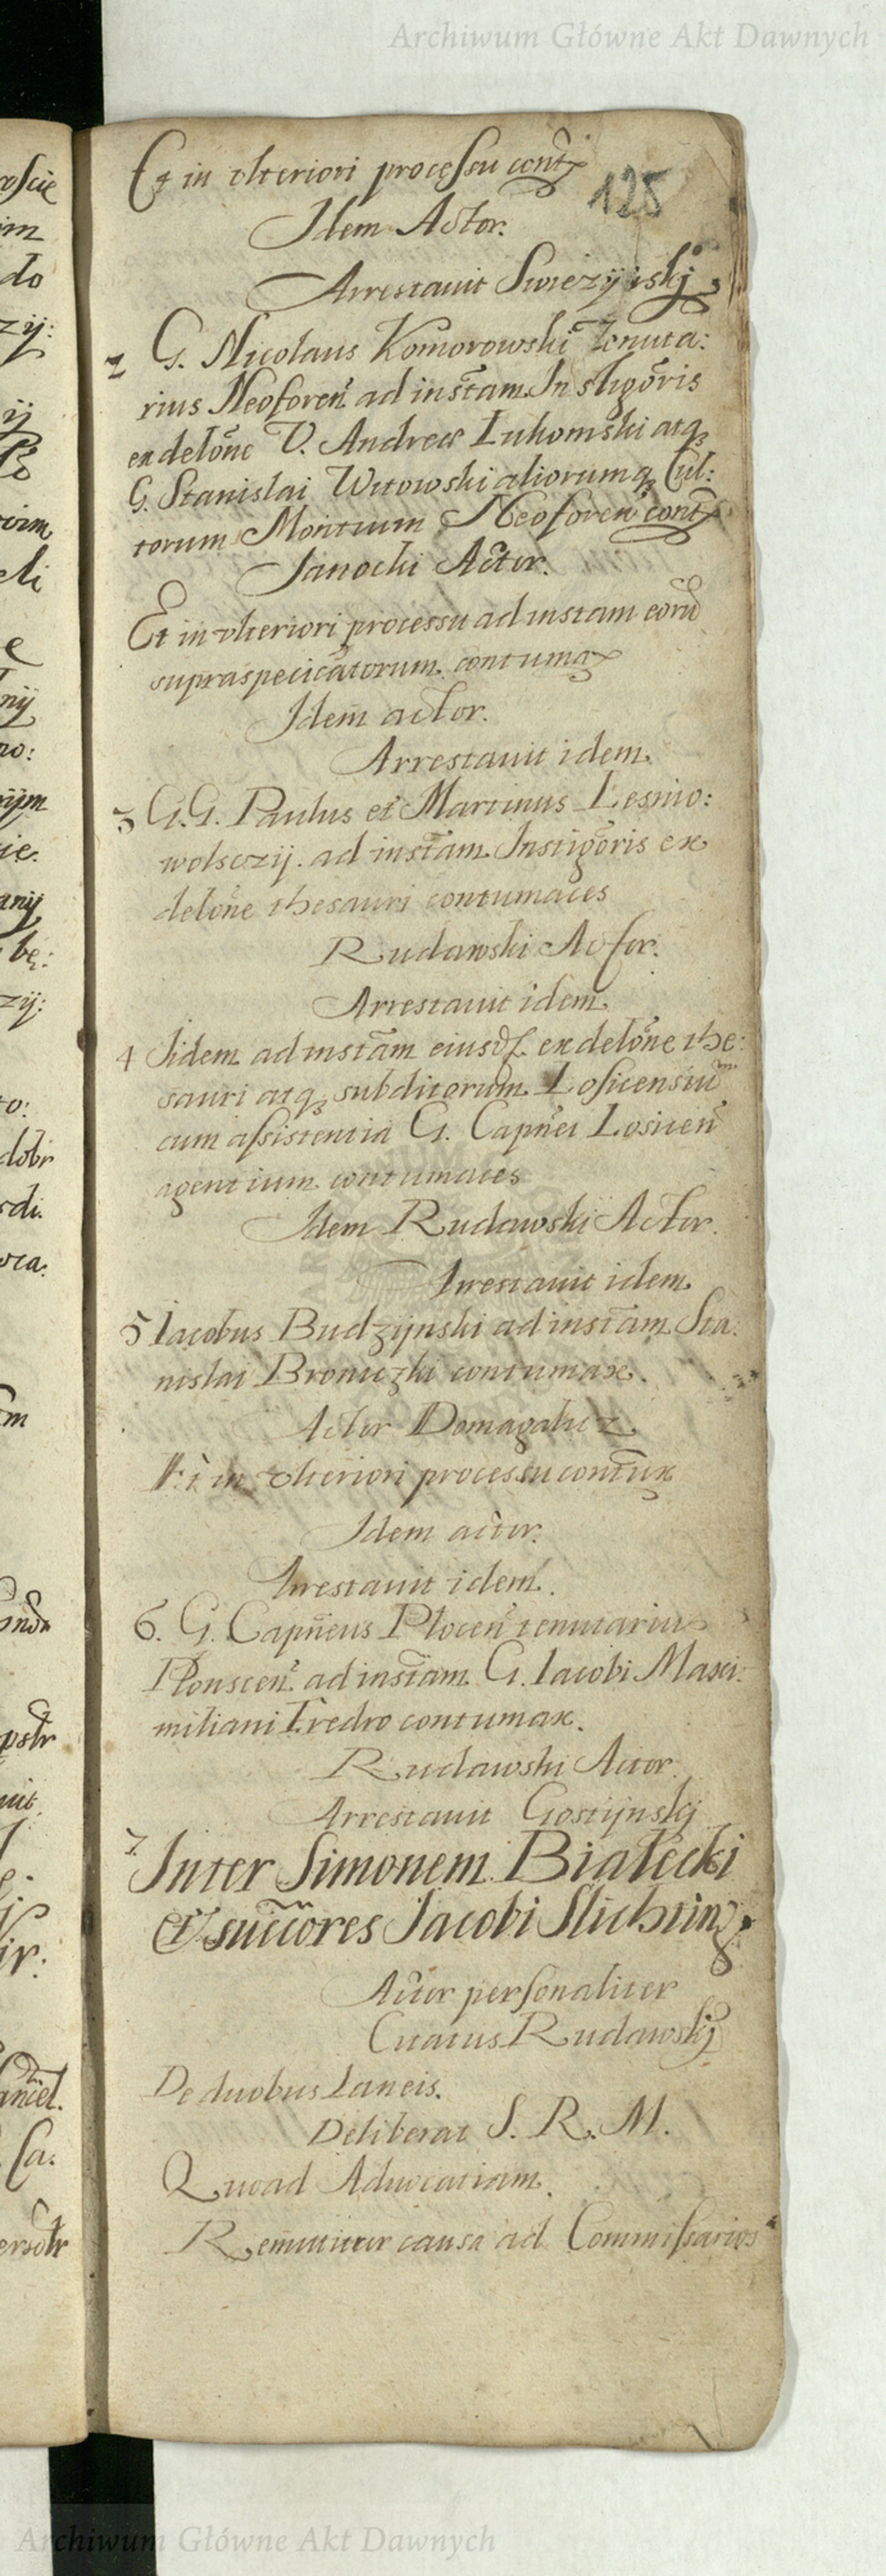 Archiwum Główne Akt Dawnych
125
Et in vlteriori processu cont
Idem Actor.
Arrestauit Swiezyński
2 G. Nicolaus Komorowski Tenuta:
rius Neoforen ad instam Instigoris
ex delone V. Andreae Luhomski atq
G. Stanislai Witowski aliorumq Cul:
torum Montium Neoforen cont
Sanocki Actor.
Et in vlteriori processu ad instam eoru
supraspecicatorum contumax
Idem actor.
Arrestauit idem.
3 G.G. Paulus et Martinus Lesnio:
wolsczij. ad instam Instigoris ex
delone thesauri contumaces
Rudawski Actor.
Arrestauit idem
4 Iidem ad instam eiusd ex delone the:
sauri atq subditorum Losicensiu
cum assistentia G. Capnei Losicen
agentium contumaces
Idem Rudawski Actor.
Arrestauit idem
5 Iacobus Budzijnski ad instam Sta:
nislai Broniczki contumax.
Actor Domagalicz
Et in vlteriori processu contux
Idem actor.
Arrestauit idem.
6. G. Capneus Plocen tenutarius
Plonscen ad instam G. Iacobi Maxi:
miliani Fredro contumax.
Rudawski Actor.
Arrestauit Gostijnskj
7. Inter Simonem Białecki
et succores Jacobi Slichting.
Actor personaliter
Citatus Rudawskj
De duobus Laneis.
Deliberat S. R. M.
Quoad Aduocatiam.
Remittitur causa ad Commissarios
Archiwum Główne Akt Dawnych